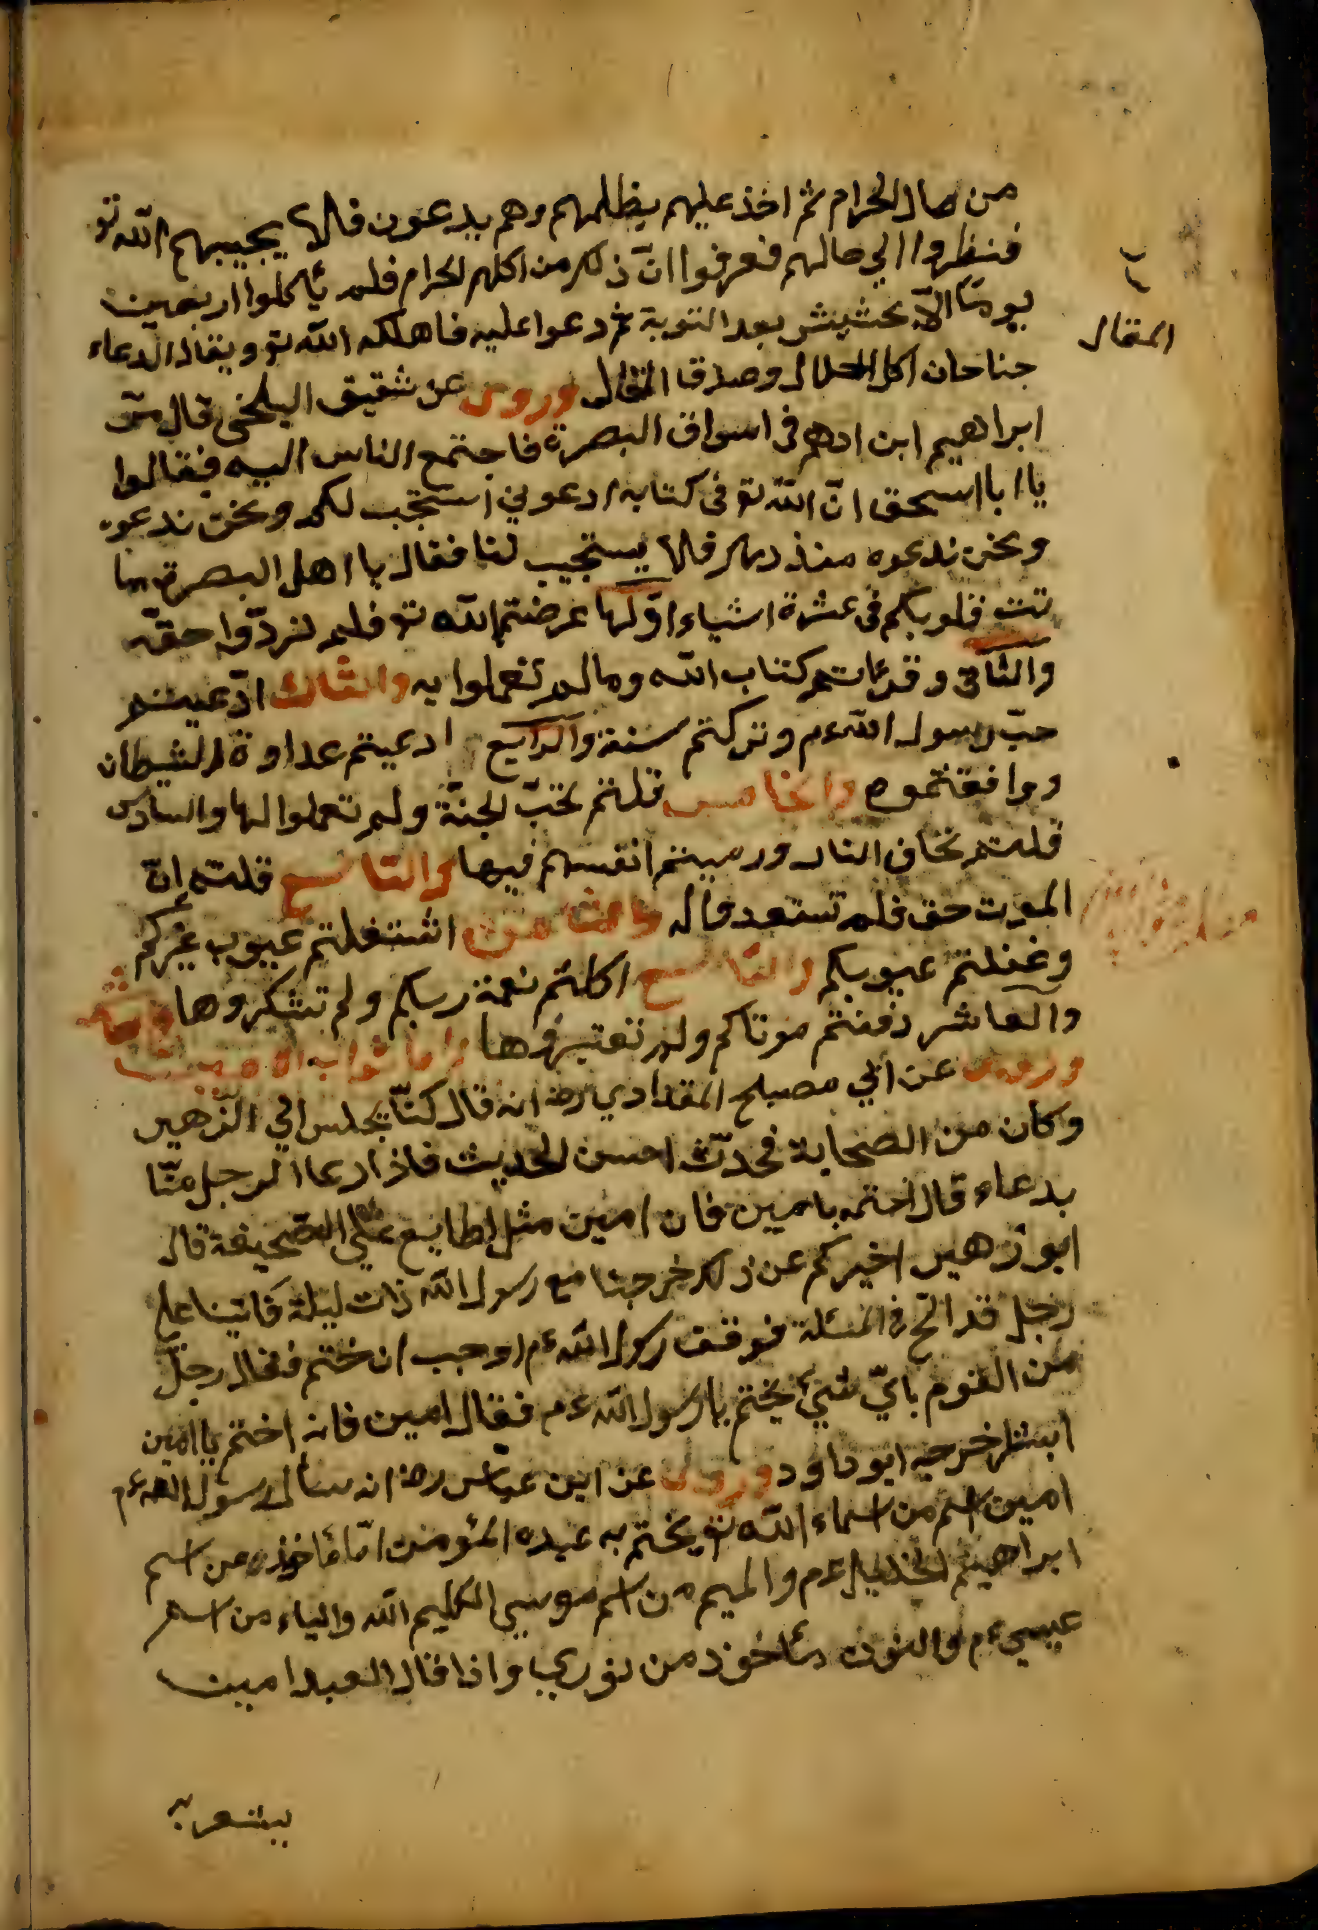 من مال الحرام ثم اخذ عليهم يظلمهم وهم يدعون فلا يجيبهم الله تو
فنظروا الي حالهم فعرفوا انّ ذلك من اكلهم الحرام فلم يأكلوا اربعين
يومًا الّا بحشيش بعد التوبة ثم دعوا عليه فاهلكه الله تو ويقال الدعاء
جناحان اكل الحلال وصدق المقال وروى عن شقيق البلخي قال مرّ
المقال
ابراهيم ابن ادهم في اسواق البصرة فاجتمع الناس اليه فقالوا
يا ابا اسحق انّ الله تو في كتابه ادعوني استجب لكم ونحن ندعوه
ونحن ندعوه منذ دهر فلا يستجيب لنا فقال يا اهل البصرة ما
تت قلوبكم في عشرة اشياء اوّلها عرفتم الله تو فلم تردّوا حقّه
والثاني وقرئتم كتاب الله ومالم تعملوا به والثالث ادّعيتم
حبّ رسول الله ءم وتركتم سنته والرابع ادعيتم عداوة الشيطان
ووافقتموه والخامس قلتم نحبّ الجنّة ولم تعملوا لها والسادس
قلتم نخاف النار ورميتم انفسهم فيها والتاسع قلتم انّ
الموت حق فلم تستعد فاله والثامن اشتغلتم عيوب غيركم
وغفلتم عيوبكم والتاسع اكلتم نعمة ربكم ولم تشكروها
والعاشر دفنتم موتاكم ولم تعتبروها واما ثواب الامين
وروى عن ابي مصبلح المقدادي رضه انه قال كنّا نجلس الي الزهير
وكان من الصحابة فحدّث احسن الحديث فاذا دعا الرجل منّا
بدعاء قال اختمه بامين فان امين مثل الطابع علي الصحيفة قال
ابو زهير اخيركم عن ذلك خرجنا مع رسول الله ذات ليلة فاتينا علي
رجل قد الحّ في المسئلة فوقف رسول الله ءم اوجب ان ختم فقال رجل
من القوم بايّ شيئ يختم يا رسول الله ءم فقال امين فانه اختم بامين
ابشر خرجه ابو داود وروى عن ابن عبّاس رضه انه سئال رسول الله ءم
امين اسم من اسماء الله تو يختم به عبده المئومن امّا مأخوذ من اسم
ابراهيم الخليل ءم والميم من اسم موسي الكليم الله والياء من اسم
عيسي ءم والنون مأخوذ من نوري واذا قال العبد امين